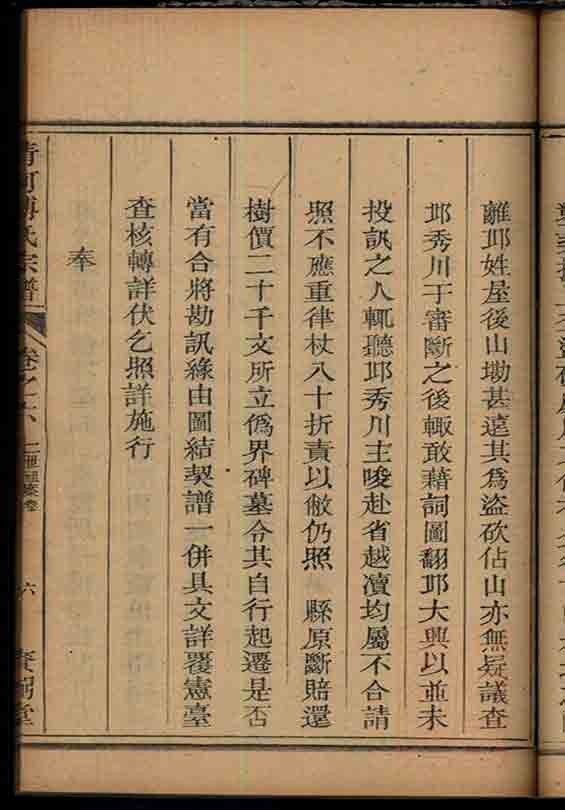 離邓姓屋後山塲甚遠其為盜砍佔山亦無疑議查
邓秀川于審斷之後輙敢藉詞圖翻邓大興以並未
投訊之人輒聽邓秀川主唆赴省越瀆均屬不合請
照不應重律杖八十折責以儆仍照 縣原斷賠還
樹價二十千文所立僞界碑墓令其自行起遷是否
當有合將勘訊緣由圖結契譜一併具文詳覆憲臺
查核轉詳伏乞照詳施行
奉
清河傅氏宗譜 卷之六 六